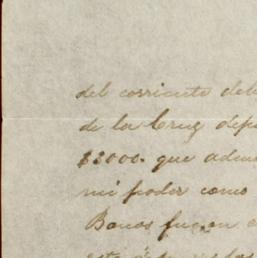 del corriente deb
de la Cruz dep
$2000. que adm
mi poder como
Bonos fueron